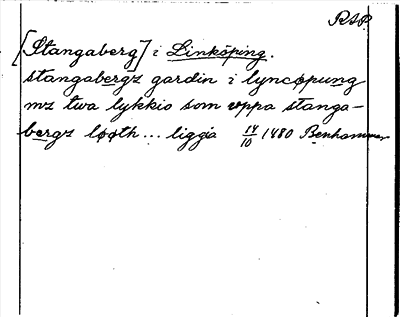 RAP.
[Stangaberg] i Linköping.
stangabergz gardin i lyncøpung
mz twa lykkio som vppa stanga-
bergz løøth ... liggia 14/10 1480 Benhammar